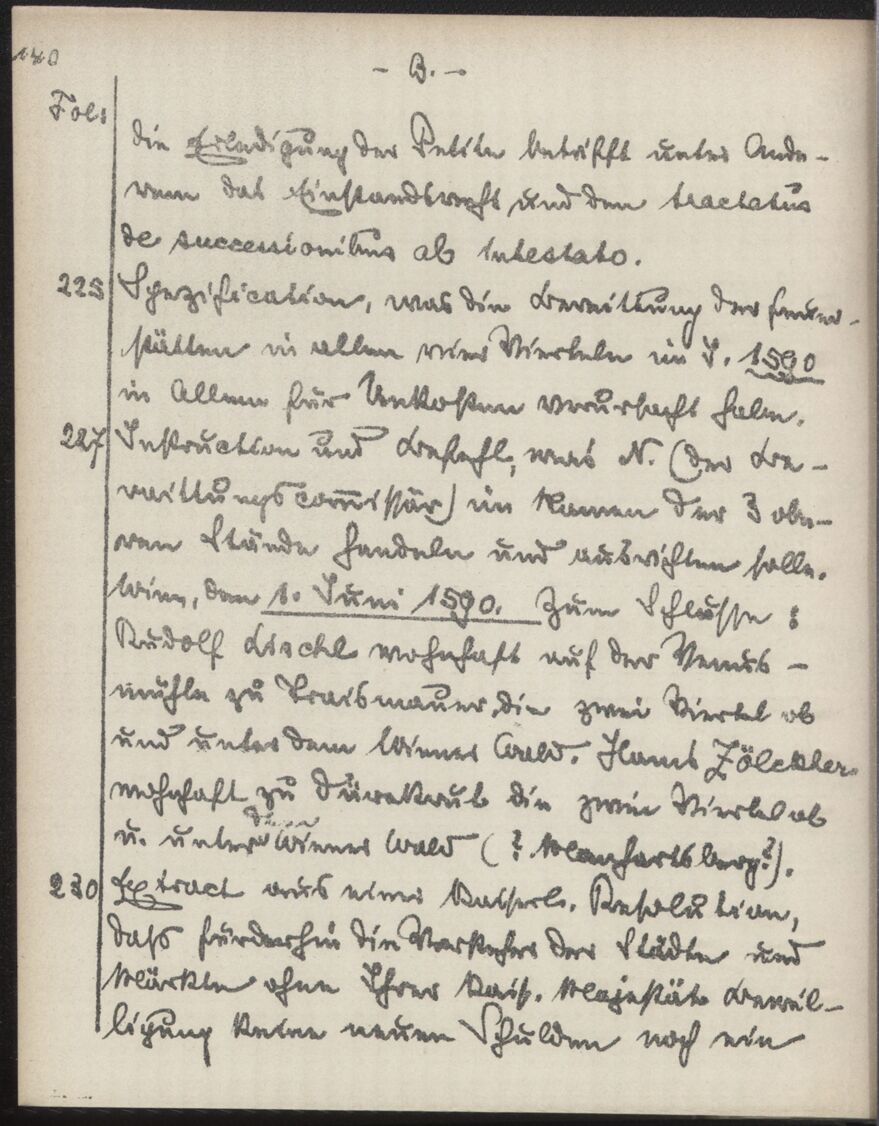 140
- B. -
Fol:
die Erledigung der Petite betrifft unter Ande-
rem das Einstandsrecht und den tractatus
de successionibus ab intestato.
225 Spezification, was die Bereittung der Feuer-
stätten in allen vier Vierteln im J. 1590
in Allem für Unkosten verursacht habe.
227 Instruction und Befehl, was N. (der Be-
raittungscom̅issär) im Namen der 3 obe-
ren Stände handeln und ausrichten solle.
Wien, den 1. Juni 1590. Zum Schlusse:
Rudolf wohnhaft auf der Venus-
mühle zu Traismauer, die zwei Viertel ob
und unter dem Wiener Wald. Hans Zölckher
wohnhaft zu Dürnkrut die zwei Viertel ob
u. unter dem Wiener Wald (? Manhartsberg?).
230 Extract aus einer Kaiserl. Resolution,
daß fürderhin die Verkäufer der Städte und
Märkte ohne Ihrer Kais. Majestät Bewil-
ligung keine neuen Schulden noch ein